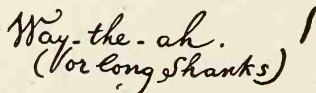 Way-the-ah.
(or long Shanks)